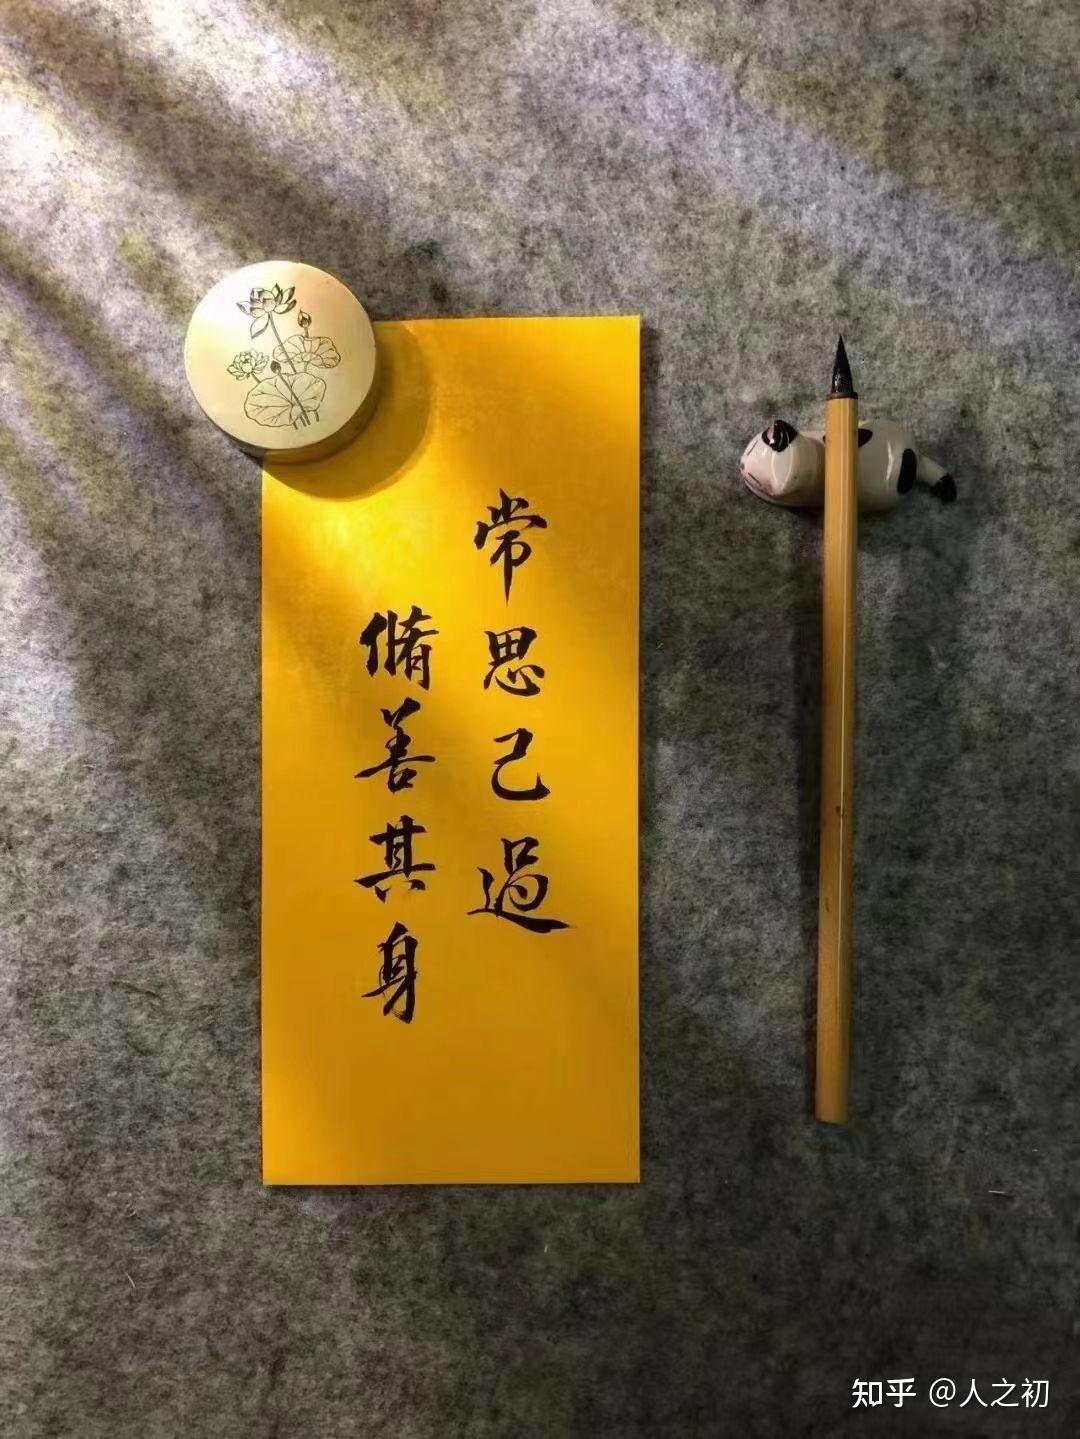 常思己過
脩善其身
知乎 @人之初